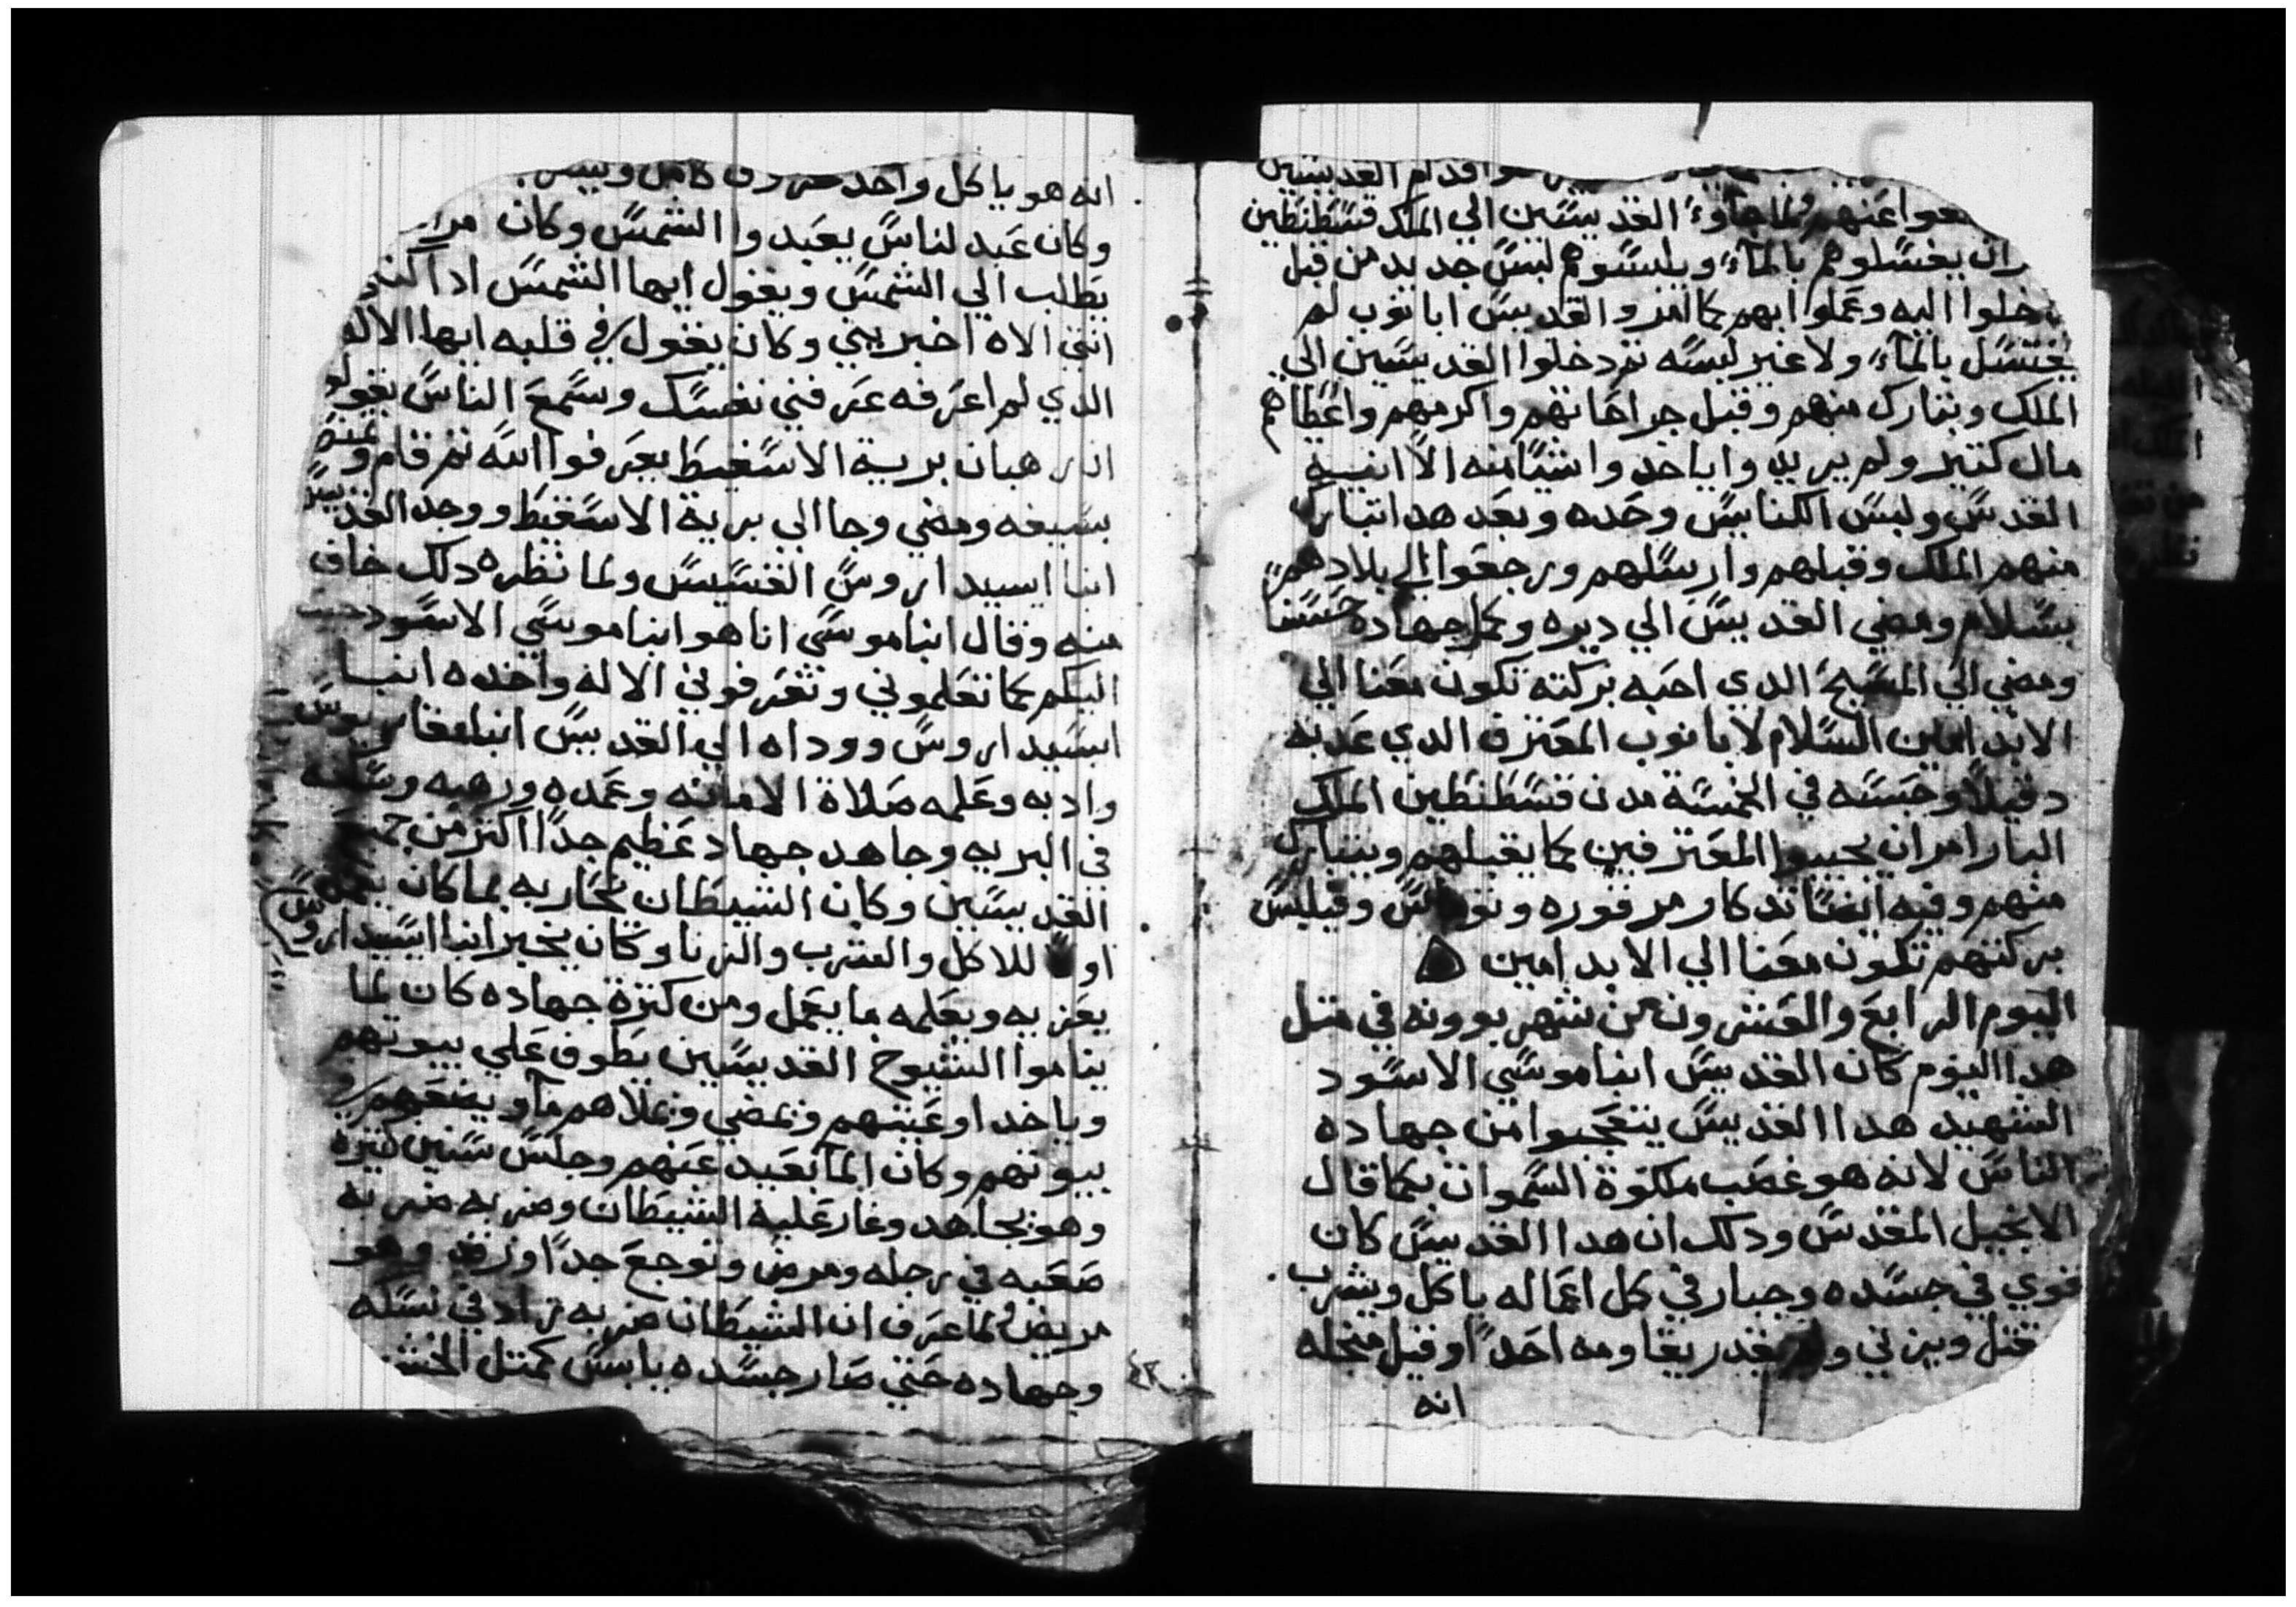 اقدام القديسين
عنهم ولما جاوءً القديسين الي الملك قسطنطين
ان يغسلوهم بالمآءً ويلبسوهم لبس جديد من قبل
دخلوا اليه وعملوا ابهم كما امر والقديس ابانوب لم
يغتسل بالمآءً ولا غير لبسه تم دخلوا القديسين الي
الملك وبتارك منهم وقبل جراحاتهم واكرمهم واعطاهم
مال كتير ولم يريدوا ياخدوا شيا منه الا انيية
القدس ولبس الكنايس وحده وبعد هدا تبارك
منهم الملك وقبلهم وارسلهم ورجعوا الي بلادهم
بسلام ومضي القديس الي ديره وكمل جهاده حسنا
ومضي الي المسيح الدي احبه بركته تكون معنا الي
الابد امين السلام لابانوب المعترف الدي عدبه
دقيلا وحبسه في الخمسة مدن قسطنطين الملك
البار امر ان يجيبوا المعترفين كما يقبلهم ويتبارك
منهم وفيه ايضا تدكار مرقوره وتوماس وقيلبس
بركتهم تكون معنا الي الابد امين
اليوم الرابع والعشرون من شهر بوونه في متل
هدا اليوم كان القديس انبا موسي الاسود
الشهيد هدا القديس يتعجبوا من جهاده
الناس لانه هو غصب ملكوة السموات بكما قال
الانجيل المقدس ودلك ان هدا القديس كان
قوي في جسده وجبار في كل اعماله ياكل ويشرب
قتل ويزني ولم يقدر يقاومه احدًا وقيل منجله
انه
انه هو ياكل واحد خروف كامل
وكان عبد لناس يعبدوا الشمس وكان مرار
يطلب الي الشمس ويقول ايها الشمس ادا كنت
انتي الاه اخبريني وكان يقول في قلبه ايها الاله
الدي لم اعرفه عرفني نفسك وسمع الناس يقولو
ان رهبان برية الاسقيط يعرفوا الله تم قام
بسيفه ومضي وجا الي برية الاسقيط ووجد القديس
انبا ايسيداروس القسيس ولما نظره دلك خاف
منه وقال انبا موسي انا هو انبا موسي الاسود جيت
اليكم كما تعلموني وتعرفوني الاله واخده انبا
ايسيداروس ووداه الي القديس انبا مقاريوس
وادبه وعلمه صلاة الامانه وعمده ورهبه وسكنه
في البريه وجاهد جهاد عظيم جدًا اكتر من جميع
القديسين وكان الشيطان يحاربه بما كان يعمله
اولاً للاكل والشرب والزنا وكان يخبر انبا ايسيداروس
يعزيه ويعلمه ما يعمل ومن كترة جهاده كان لما
يناموا الشيوخ القديسين يطوف علي بيوتهم
وياخد اوعيتهم ويمضي ويملاهم مآ ويضعهم في
بيوتهم وكان المآ بعيد عنهم وجلس سنين كتيرة
وهو يجاهد وغار عليه الشيطان وضربه ضربه
صعبه في رجله ومرض وتوجع جدًا ورقد وهو
مريض ولما عرف ان الشيطان ضربه زاد في نسكه
وجهاده حتي صار جسده يابس كمتل الخشب